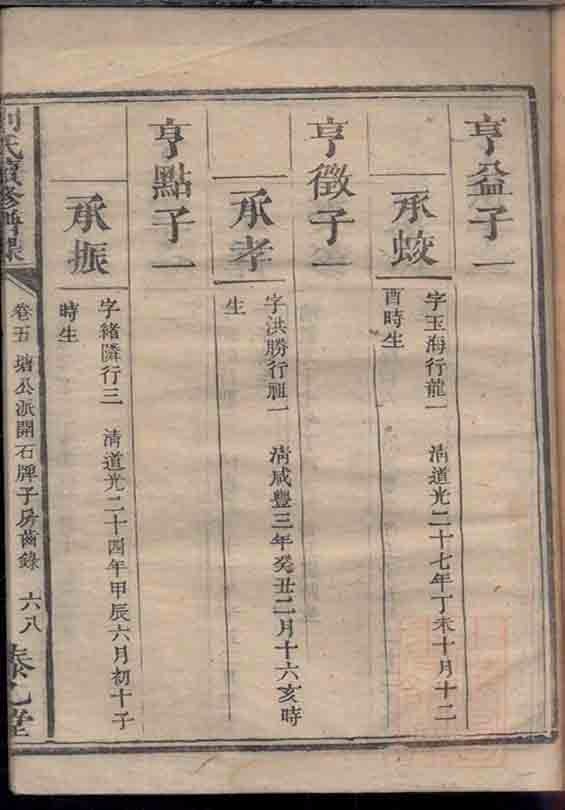 亨益子一
承蛟
字玉海行龍一　清道光二十七年丁未十月十二
酉時生
亨徵子一
承孝
字洪勝行祖一　清咸豐三年癸丑二月十六亥時
生
亨點子一
承振
字緒隣行三　清道光二十四年甲辰六月初十子
時生
氏續修譜
卷五　塘公派開石牌子房齒錄　六八
堂